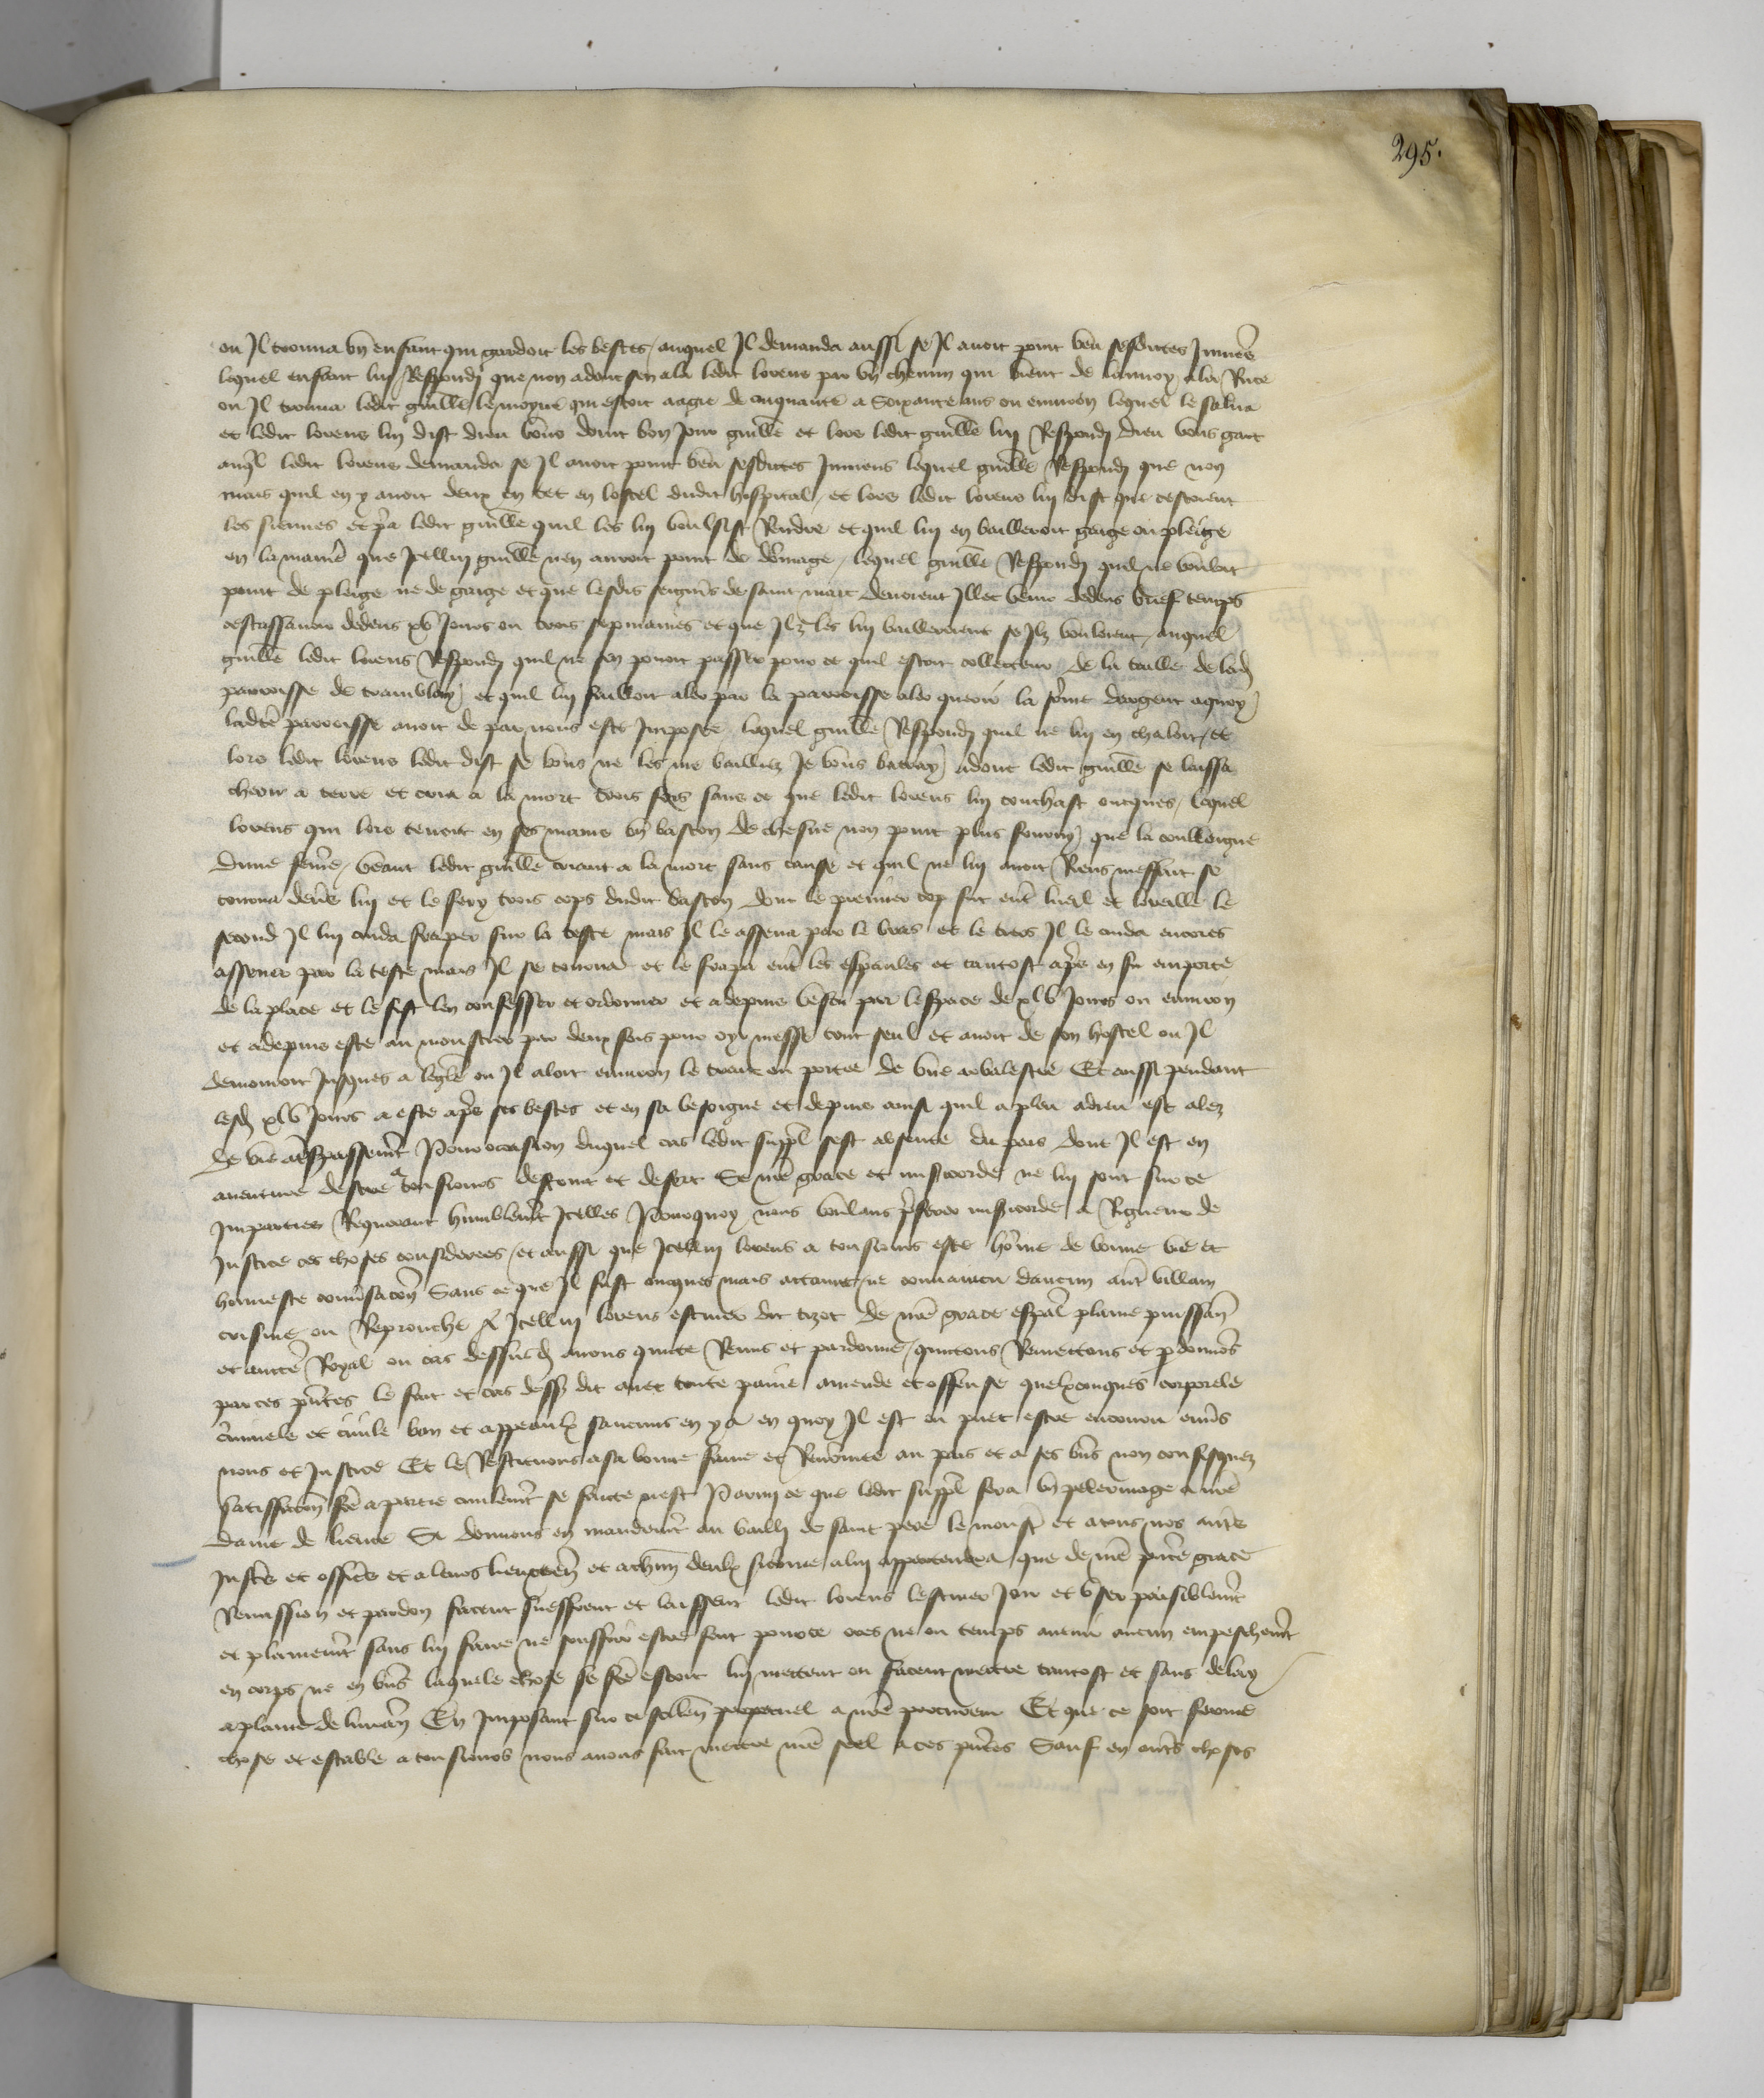 295.
ou Il trouva un enfant qui gardoit les bestes, auquel Il demanda aussi se Il avoit point veu sesdictes Jumens
lequel enfant lui Respondi que non adonc sen ala ledit Lorens par un chemin qui vient de launoy a la Rue
ou Il trouva ledit guille le moyne qui estoit aagie de cinquante a Soixante ans ou environ lequel le salua
et ledit Lorens lui dist dieu vous doint bon jour guille et lors ledit guille lui Respondi dieu vous gart
auql ledit Lorens demanda se Il avoit point veu sesdictes Jumens lequel guille Respondi que non
mais quil en y avoit deux en tet en lostel dudit hospital, et lors ledit Lorens lui dist que cestoient
les siennes et pria ledit guille quil les lui voulsist Rendre et quil lui en bailleroit gaige ou pleige
en la maniere que Icellui guille nen auroit point de domage, lequel guille Respondi quil ne vouloit
point de pleige ne de gaige et que lesdis seigneurs de saint marc devoient Illec venir dedens brief temps
cestassavoir dedens xv Jours ou trois sepmaines et que Ilz les lui bailleroient se Ilz vouloient, auquel
guille ledit Lorens Respondi quil ne sen povoit passer pour ce quil estoit collecteur de la taille de lad
parroisse de tramblay et quil lui failloit aler par la parroisse aler querir la somme dargent a quoy
ladicte parroisse avoit de par nous este Imposee, lequel guille Respondi quil ne lui en chaloit, et
lors ledit Lorens ledit dist se vous ne les me bailliez Je vous batray adonc ledit guille se laissa
cheoir a terre et cria a la mort trois fois sans ce que ledit Lorens lui touchast oncques, lequel
Lorens qui lors tenoit en ses mains un baston de chesne non point plus fourny que la conlloigne
dune femme, veant ledit guille criant a la mort sans cause et quil ne lui avoit Riens meffait se
tourna devers lui et le fery trois cops dudit baston dont le premier cop fut entre lueil et loreille le
second Il lui cuida fraper sur la teste mais Il le assena par le bras et le tiers Il le cuida encores
assener par la teste mais Il se tourna et le frapa entre les espaules et tantost apres en fu emporte
de la place et le fist len confesser et ordonner et a depuis vescu par lespace de xlv Jours ou environ
et a depuis este au moustier par deux fois pour oyr messe tout seul et avoit de son hostel ou Il
demouroit Jusques a leglise ou Il aloit environ le trait ou portee de une arbalestre Et aussi pendant
lesd xlv Jours a este apres ses bestes et en sa besoigne et depuis ainsi quil a pleu a dieu est alez
de vie a trespassement Pour occasion duquel cas ledit suppl sest absente du pais dont Il est en
aventure destre a tousiours destruit et desert Se nre grace et misericorde ne lui sont sur ce
Imparties Requerant humblement Icelles Pourquoy nous voulans preferer misericorde a Rigueur de
Justice ces choses considerees, et aussi que Icellui Lorens a tousiours este homme de bonne vie et
honneste conversacion Sans ce que Il fust oncques mais attaint ne convaincu daucun autre villain
crisme ou Reprouche A Icellui Lorens estivier dit tizot de nre grace espal plaine puissance
et auctorite Royal ou cas dessusd avons quitte Remis et pardonne, quittons Remettons et pardonnons
par ces presentes le fait et cas dessus dit avec toute paine amende et offense quelxconques corporele
criminele et civile ban et appeaulx saucuns en y a en quoy Il est ou puet estre encouru envers
nous et Justice Et le Restituons a sa bonne fame et Renommee au pais et a ses biens non confisquez
satisfaction fce a partie civilement se faicte nest Parmy ce que ledit suppl fera un pelerinage a nre
dame de lience Si donnons en mandement au bailli de saint pere le moustier et a tous nos autres
Justiciers et officiers et a leurs lieuxtenans et a chun deulx si comme a lui appartendra que de nre presente grace
Remission et pardon facent sueffrent et laissent ledit Lorens lestivier Joir et user paisiblement
et plainement sans lui faire ne souffrir estre fait pour ce ores ne ou temps avenir aucun empeschement
en corps ne en biens laquele chose se fce estoit lui mettent ou facent mettre tantost et sans delay
a plaine delivrance En Imposant sur ce silence perpetuel a nre procureur Et que ce soit ferme
chose et estable a tousiours nous avons fait mettre nre seel a ces presentes Sauf en autres choses